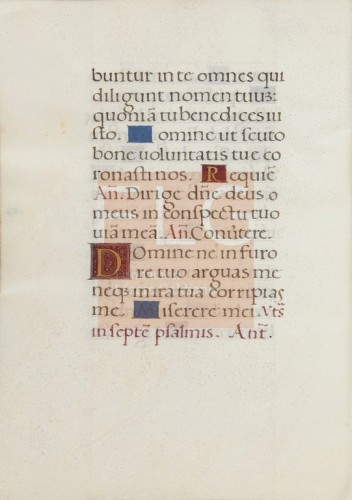 buntur in te omnes qui
diligunt nomen tuuʒ:
quoniā tu benedices iu
sto. Domine ut scuto
bone voluntatis tue co
ronasti nos. Requiē
Añ. Dirige dñe deus o
meus in conspectu tuo
uiā meā. Añ. Conūtere.
Domine ne in furo
re tuo arguas me
neqʒ in ira tua corripias
me. Miserere mei. Vts̄
in septē psalmis. Ant̄.